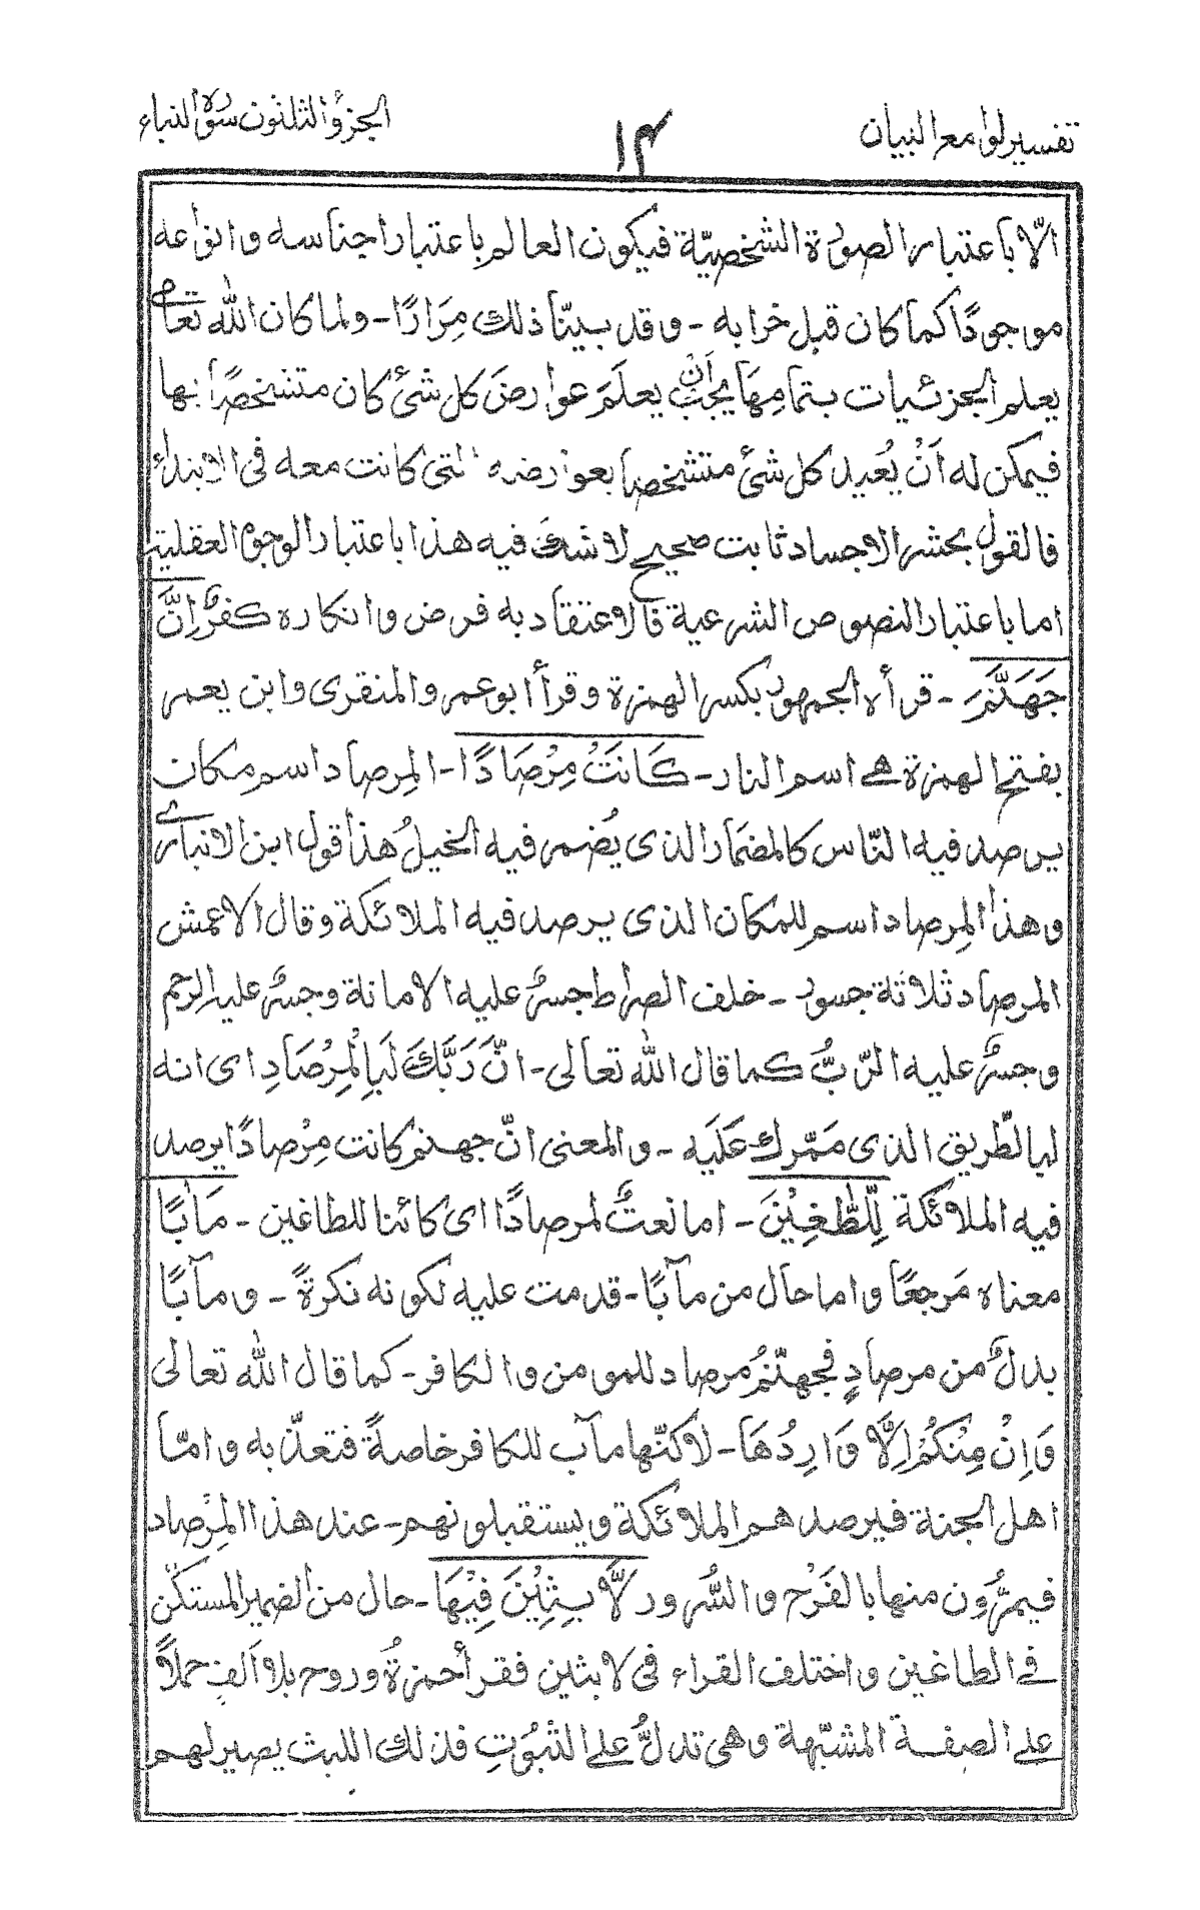 تفسير لوامع البيان
۱۴
الجزؤ الثلثون سورة النباء
الّا باعتبار الصورة الشخصيّة فيكون العالم باعتبار اجناسه وانواعه
موجودًا كما كان قبل خرابه - وقد بيّنا ذلك مِرَارًا - ولما كان الله تعالى
يعلم الجزئيات بتمامِهَا يجب اَنْ يعلَمَ عوارضَ كل شئ كان متشخصًا بها
فيمكن له اَنْ يُعيد كل شئ متشخصا بعوارضه التى كانت معه فى الابتداء
فالقول بحشر الاجساد ثابت صحيح لا شكَ فيه هذا باعتبار الوجوه العقلية
اما باعتبار النصوص الشرعية فالاعتقاد به فرض وانكاره كفرٌ اِنَّ
جَهَنَّمَ - قرأه الجمهور بكسر الهمزة وقرأ ابو عمر والمنقرى وابن يعمر
بفتح الهمزة هى اسم النار - كَانَتْ مِرْصَادًا - المِرصاد اسم مكان
يرصد فيه النّاس كالمضمار الذى يُضمر فيه الخيلُ هذا قول ابن الانبارى
وهذا المِرصاد اسم للمكان الذى يرصد فيه الملائكة وقال الاعمش
المرصاد ثلاثة جسور - خلف الصراط جسرٌ عليه الامانة وجسرٌ عليه الرحم
وجسرٌ عليه الرّبُّ كما قال الله تعالى - انَّ رَبَّكَ لَبِالْمِرْصَادِ اى انه
لبالطّريق الذى مَمّرك عَلَيه - والمعنى انّ جهنم كانت مِرْصادًا يرصد
فيه الملائكة لِّلطّٰغِيْنَ - اما نعتٌ لمرصادًا اى كائنا للطاغين - مَاٰبًا
معناه مَرجعًا واما حال من مآبًا - قدمت عليه لكونه نكرةً - ومآبًا
بدلٌ من مرصادٍ فجهنّمُ مرصاد للمومن والكافر - كما قال الله تعالى
وَاِنْ مِنْكُمْ اِلَّا وَارِدُهَا - لاكنّها مآب للكافر خاصةً فتعذّبه وامّا
اهل الجنة فيرصد هم الملائكة ويستقبلونهم - عند هذا المِرْصاد
فيمرُّون منها بالفَرْح والسُّرور لَّابِثِيْنَ فِيْهَا - حال من الضمير المستكنّ
فى الطاغين واختلف القراء فى لابثين فقرأ حمزةُ وروح بلا اَلفٍ حملاً
على الصفة المشبّهة وهى تدلُّ على الثبُوتِ فذلك اللبث يصير لهم